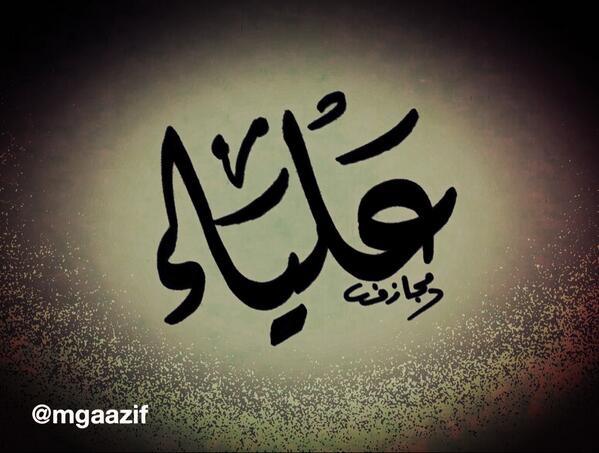 عَلْيَاء
مجازف
@mgaazif